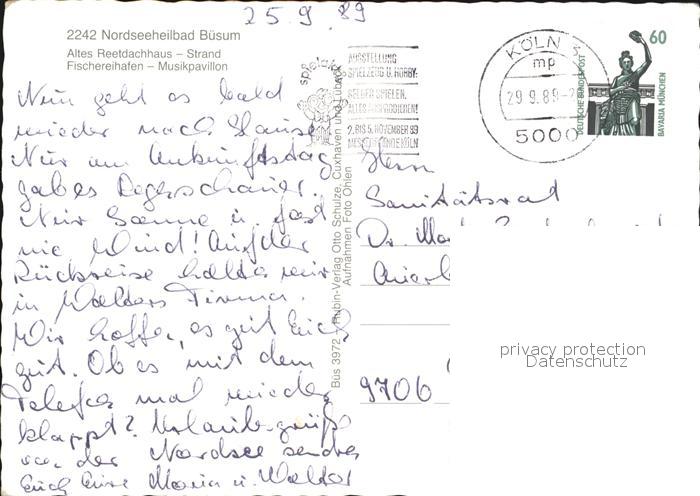 25.9.89
2242 Nordseeheilbad Büsum
Altes Reetdachhaus – Strand
Fischereihafen – Musikpavillon
Nun geht es bald
wieder nach Hause
Nur am Ankunftstag
gab es Regenschauer.
Nur Sonne u. fast
nie Wind! Auf der
Rückreise halten wir
in Walders Firma.
Wir hoffen, es geht Euch
gut. Ob es mit dem
Telefon mal wieder
klappt? Urlaubsgrüße
von der Nordsee senden
Euch Eure Maria u. Walter
Büs 3972 Rubin-Verlag Otto Schulze, Cuxhaven und Lübeck
Aufnahmen Foto Ohlen
AUSSTELLUNG
SPIELZEUG U. HOBBY:
SELBER SPIELEN,
ALLES AUSPROBIEREN!
2. BIS 5. NOVEMBER 89
KÖLN
KÖLN 3
mp
29.9.89
5000
60
DEUTSCHE BUNDESPOST
BAVARIA MÜNCHEN
Herrn
Sanitätsrat
Dr.
9706
privacy protection
Datenschutz